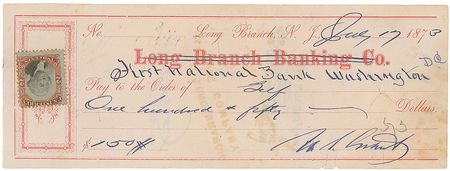 No. Long Branch, N. J. July 17 1873
Long Branch Banking Co.
First National Bank Washington DC
Pay to the Order of Self
One hundred & fifty Dollars
$150 U. S. Grant